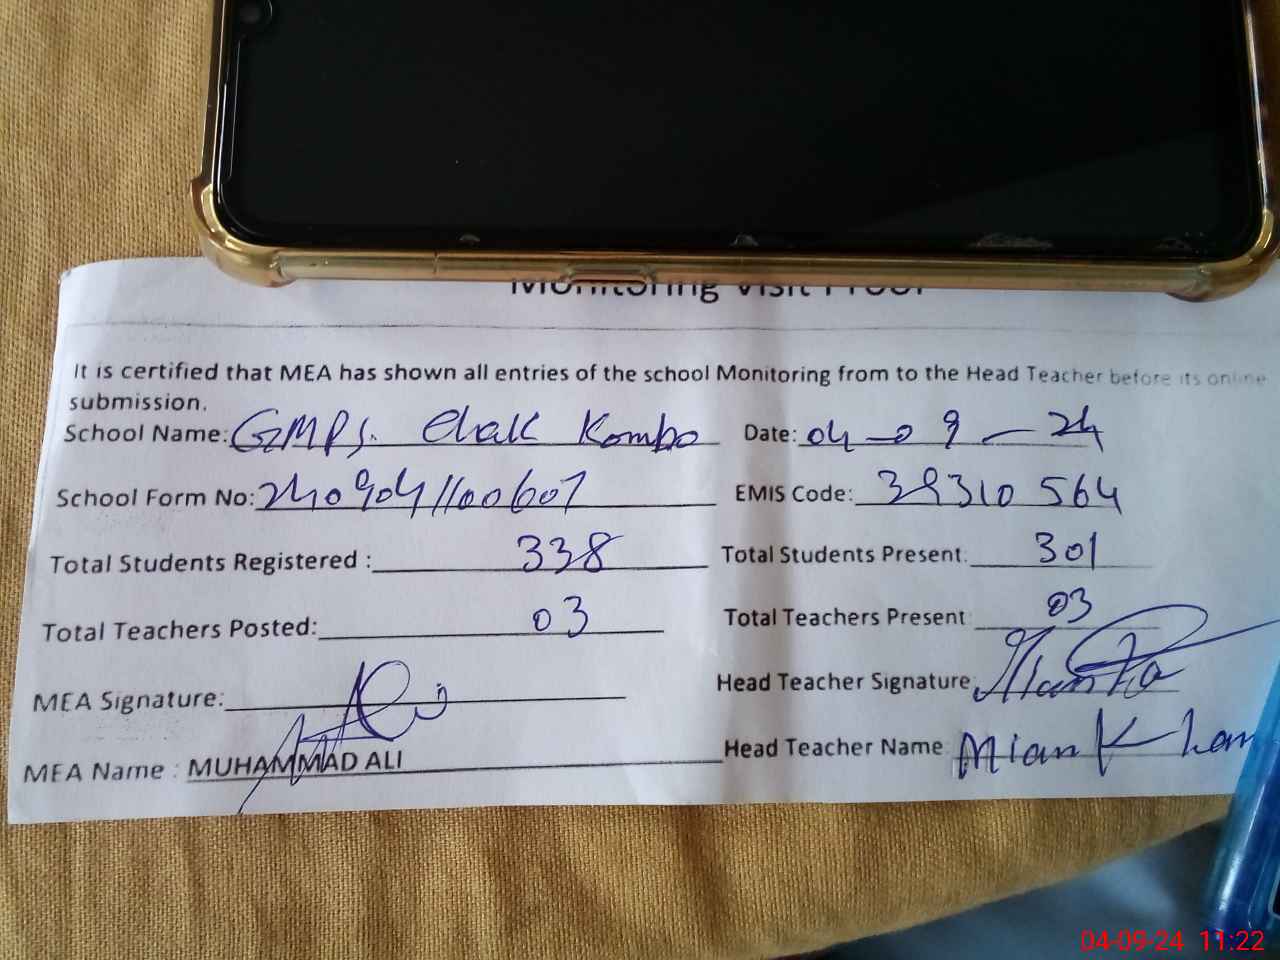 Monitoring Visit Proof
It is certified that MEA has shown all entries of the school Monitoring from to the Head Teacher before its online
submission.
School Name: GMPS. Chak Kombo Date: 04-09-24
School Form No: 2409041100607 EMIS Code: 39310564
Total Students Registered : 338 Total Students Present: 301
Total Teachers Posted: 03 Total Teachers Present: 03
MEA Signature: Ali Head Teacher Signature:
MEA Name : MUHAMMAD ALI Head Teacher Name: Mian Khan
04-09-24 11:22